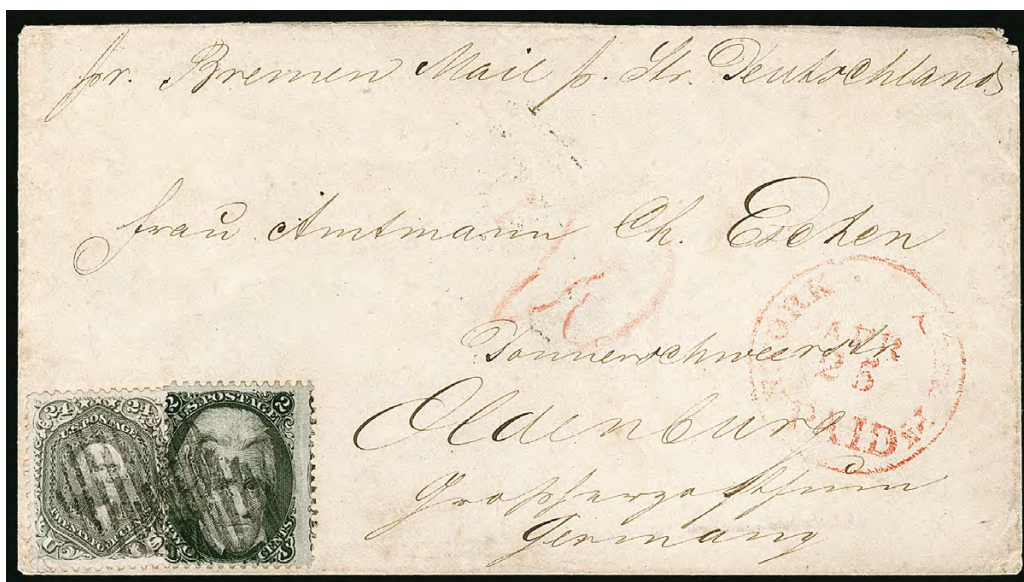 pr. Bremen Mail p. Str. Deutschland
Frau Amtmann Ch. Escken
Donnerschweerstr.
Oldenburg
Germany
YORK
APR
25
PAID
24 24
U.S. POSTAGE
2 2
U.S. POSTAGE